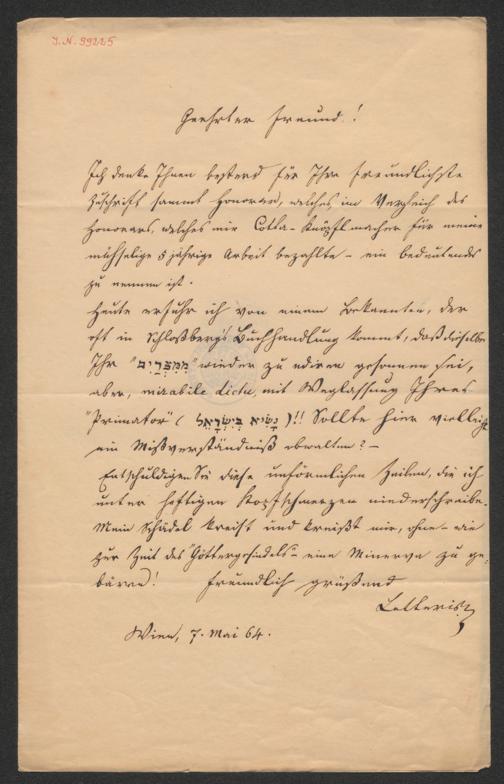 J.N. 99225
Geehrter Freund!
Ich danke Ihnen bestens für Ihre freundlichste
Zuschrift sammt Honorar, welches im Vergleich des
Honorars, welches mir Cotta- für meine
mühselige 5 jährige Arbeit bezahlte - ein bedeutendes
zu nennen ist.
Heute erfuhr ich von einem Bekannten, der
oft in Schloßbergs Buchhandlung kommt, daß dieselbe
Ihr "מִמִּצְרַיִם" wieder zu ediren gesonnen sei,
aber, mirabile dictu, mit Weglassung Ihres
"Primator" (נָשִׂיא בְּיִשְׂרָאֵל)!! Sollte hier vielleicht
ein Mißverständniß obwalten? -
Entschuldigen Sie diese unförmlichen Zeilen, die ich
unter heftigen Kopfschmerzen niederschreibe.
Mein Schädel kreist und kreißt mir, ohne - wie
zur Zeit des "Göttergesindels" - eine Minerva zu ge-
bären! Freundlich grüßend
Letteris
Wien, 7. Mai 64.